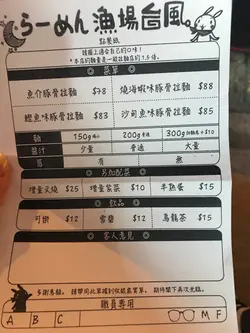 らーめん漁場台風
點餐紙
請圈上適合自己的口味！
*本店的麵量是一般拉麵店的1.5倍。
◎ 菜單 ◎
魚介豚骨拉麵 $78 燒海蝦味豚骨拉麵 $88
鰹魚味豚骨拉麵 $83 沙甸魚味豚骨拉麵 $85
麵 150g 細 200g 普通 300g
醬汁 少量 普通 大量
蔥 有 無
◎ 另加配菜 ◎
增量叉燒 $25 增量紫菜 $10 半熟蛋 $15
◎ 飲品 ◎
可樂 $12 雪碧 $12 烏龍茶 $15
◎ 客人意見 ◎
多謝惠顧。 請帶同此單據到收銀處買單。 期待閣下再次光臨。
職員專用
A B C M F